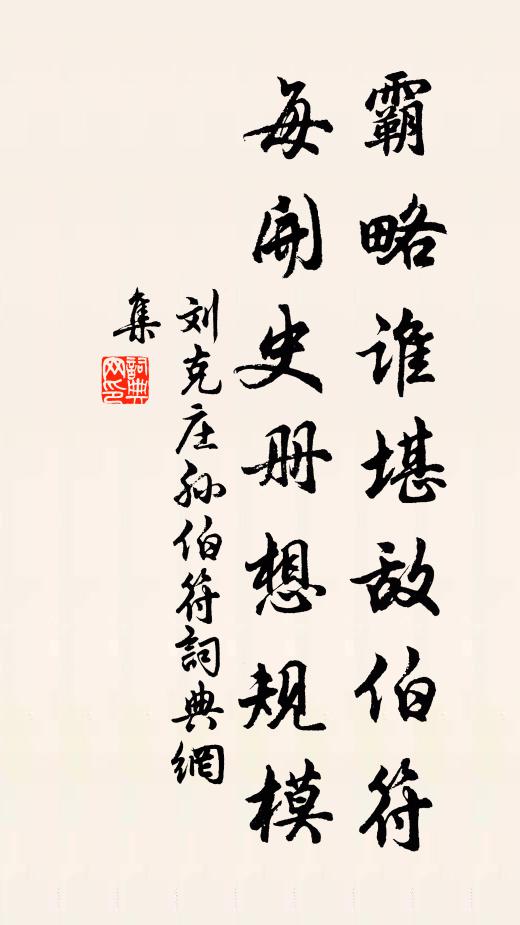 霸略谁堪敌伯符
每开史册想规模
刘克庄孙伯符詞典網
集
詞典
网印